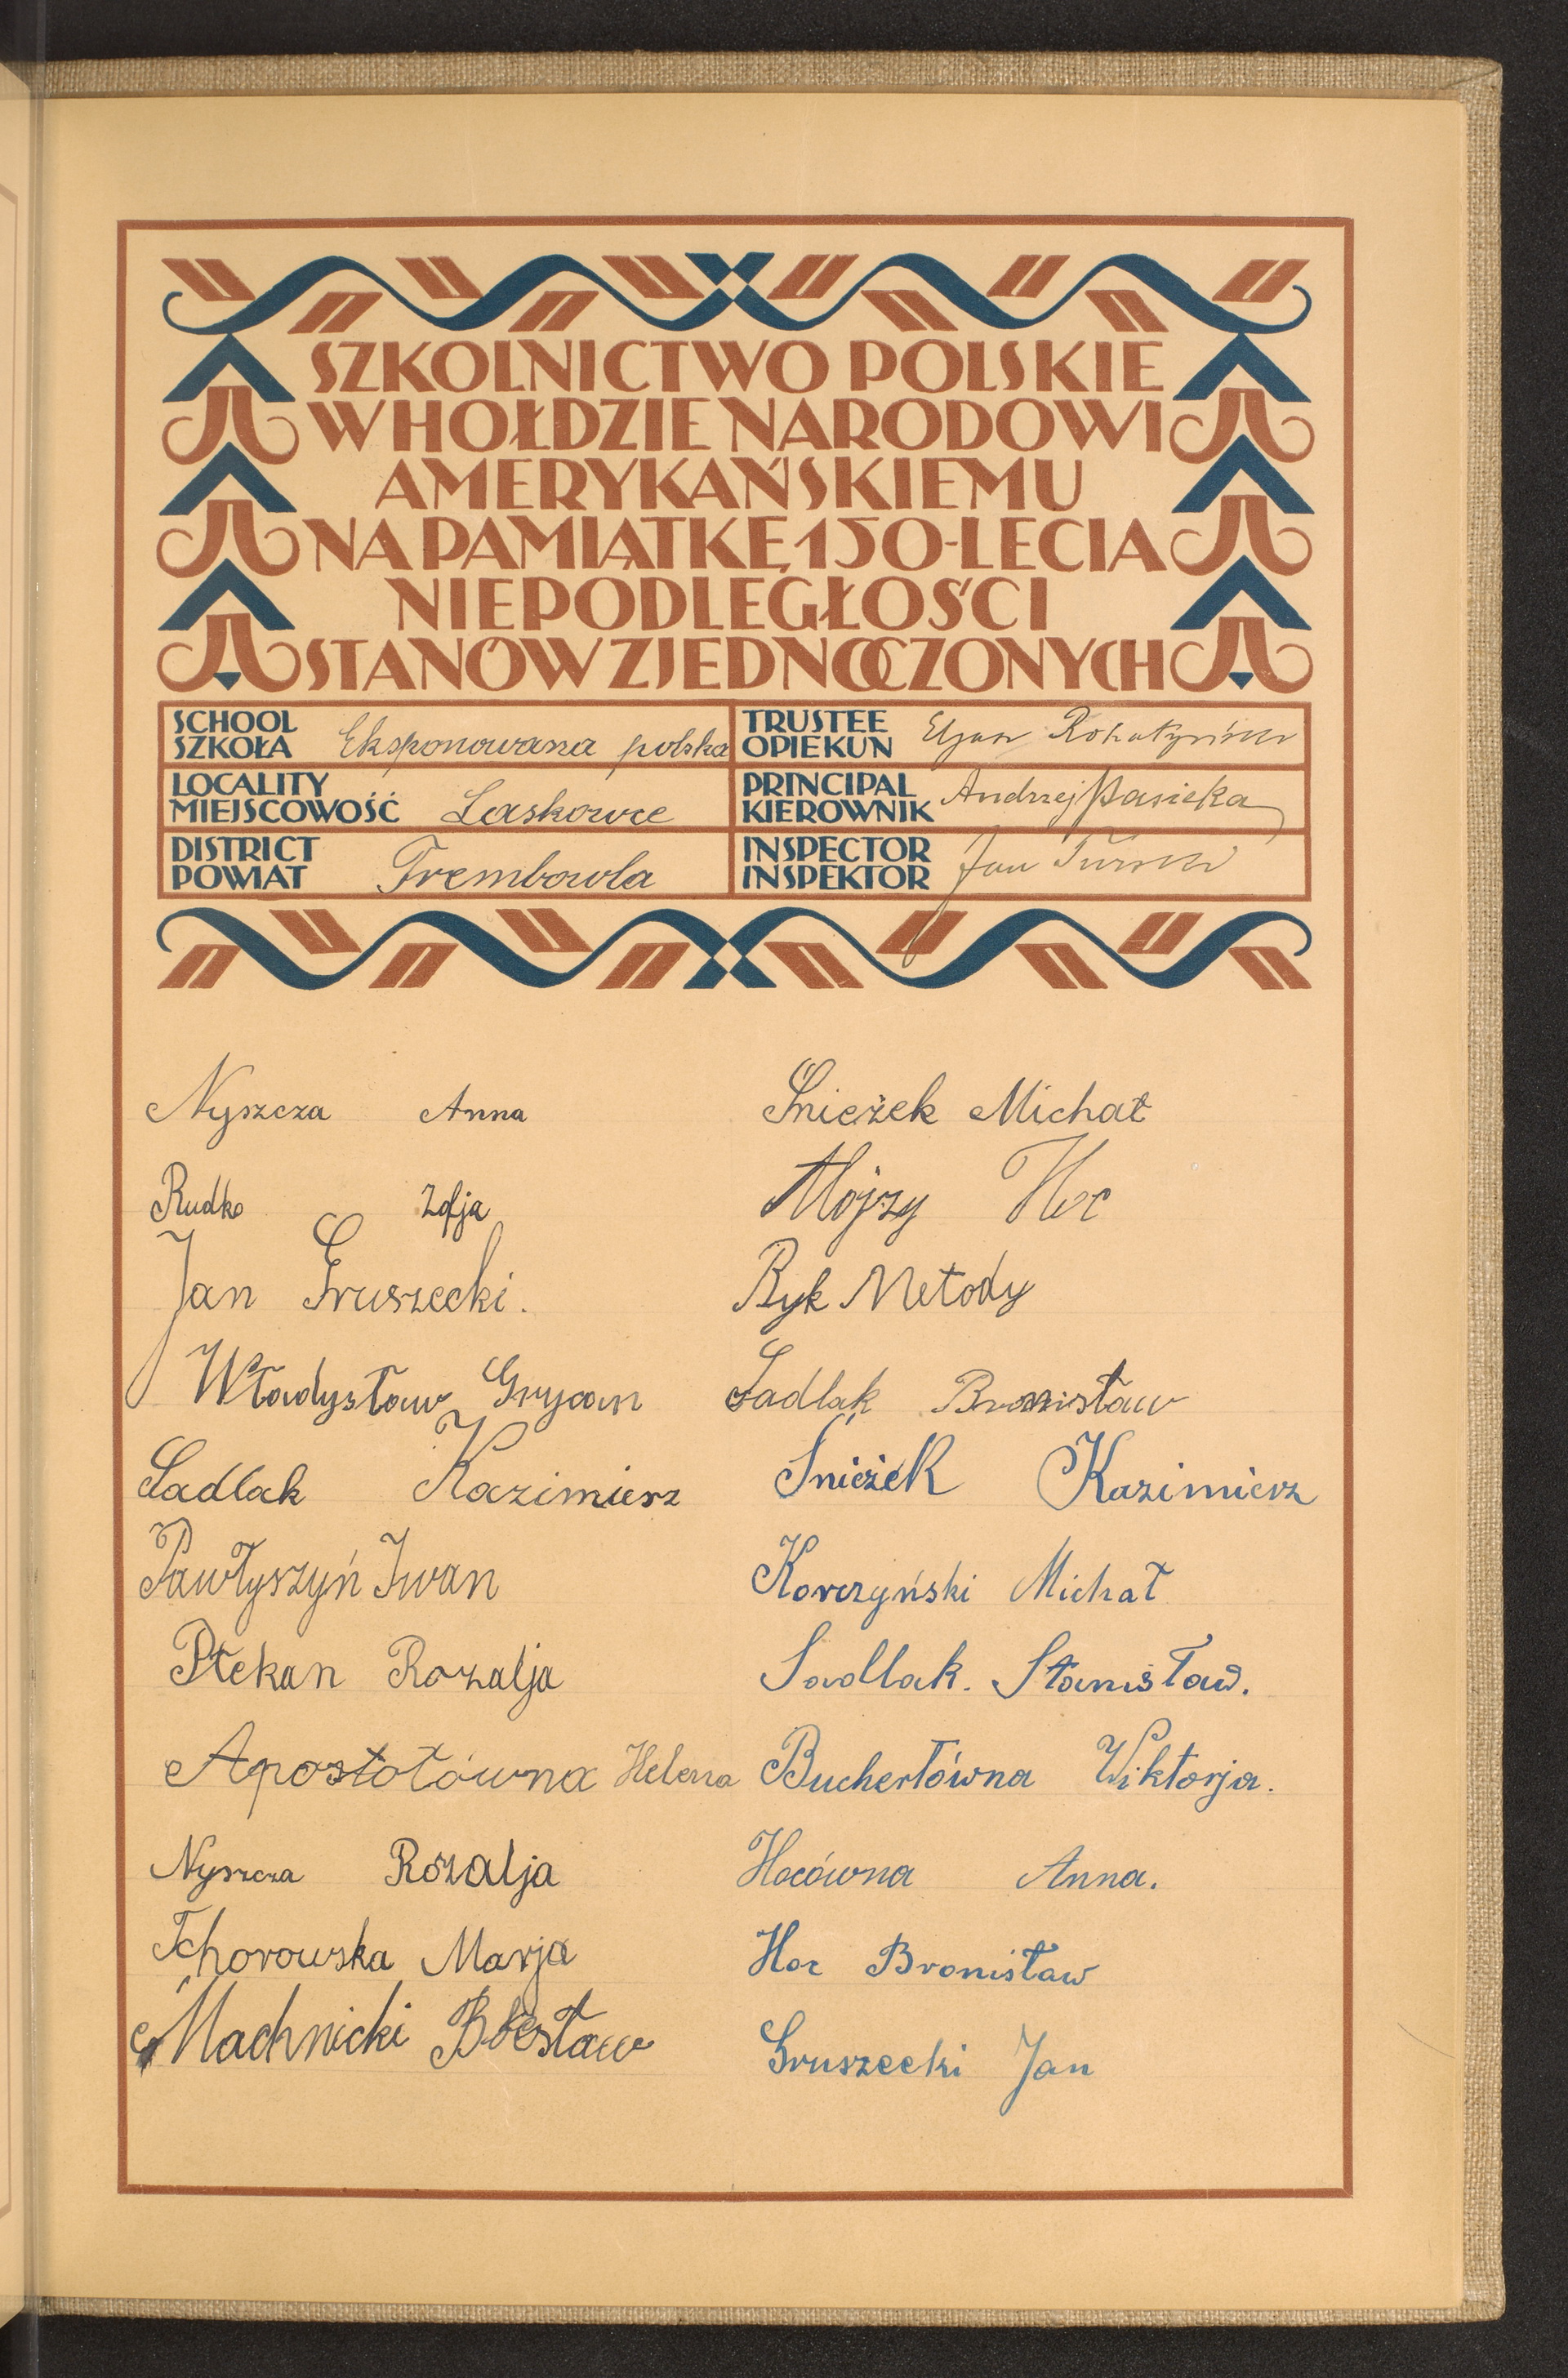 SZKOLNICTWO POLSKIE
W HOŁDZIE NARODOWI
AMERYKAŃSKIEMU
NA PAMIĄTKĘ 150-LECIA
NIEPODLEGŁOŚCI
STANÓW ZJEDNOCZONYCH
SCHOOL
SZKOŁA Eksponowana polska
TRUSTEE
OPIEKUN
LOCALITY
MIEJSCOWOŚĆ Laskowce
PRINCIPAL
KIEROWNIK Andrzej Pasieka
DISTRICT
POWIAT Trembowla
INSPECTOR
INSPEKTOR Jan
Nyszcza Anna
Rudko Zofja
Jan Gruszecki.
Władysław Grycan
Sadlak Kazimierz
Pawłyszyń Iwan
Ptekan Rozalja
Apostołówna Helena
Nyszcza Rozalja
Tchorowska Marja
Machnicki
Śnieżek Michał
Mojzy Hoc
Ryk Metody
Sadlak Bronisław
Śnieżek Kazimierz
Korczyński Michał
Sadlak. Stanisław.
Buchertówna Wiktorja.
Hocówna Anna.
Hoc Bronisław
Gruszecki Jan